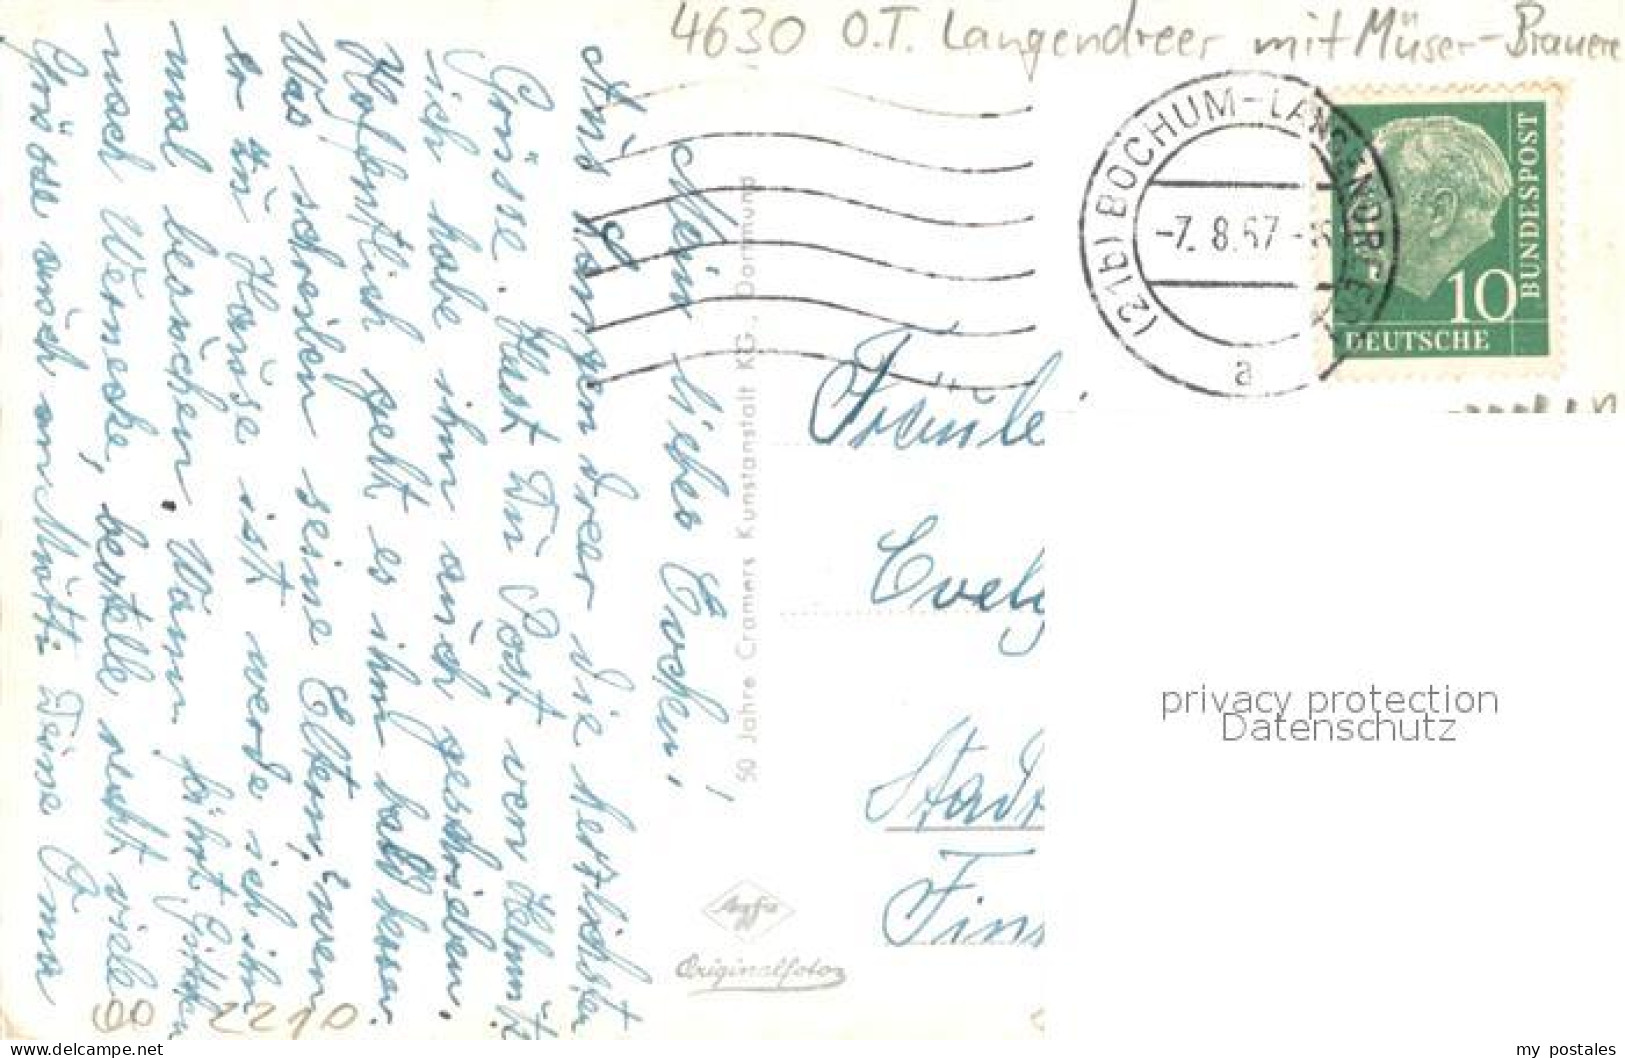 4630 O.T. Langendreer mit Müser-Brauere
(21b) BOCHUM-LANGENDREER
-7. 8.57-
a
10
DEUTSCHE
BUNDESPOST
Mein liebes Evchen!
Aus Langendreer die herzlichsten
Grüsse. Hast Du Post von Helmut?
ich habe ihm auch geschrieben.
Hoffentlich geht es ihm bald besser
Was schreiben seine Eltern, wenn
er zu Hause ist werde ich ihn
mal besuchen. Wann fährt
noch Wernecke, bestelle recht viele
Grüsse auch an Mutti Deine Oma
50 Jahre Cramers Kunstanstalt KG., Dortmund
Agfa
Originalfotos
Fräule
Evely
Stadt
Fins
privacy protection
Datenschutz
00 2210
the marketplace for collectors
my postales